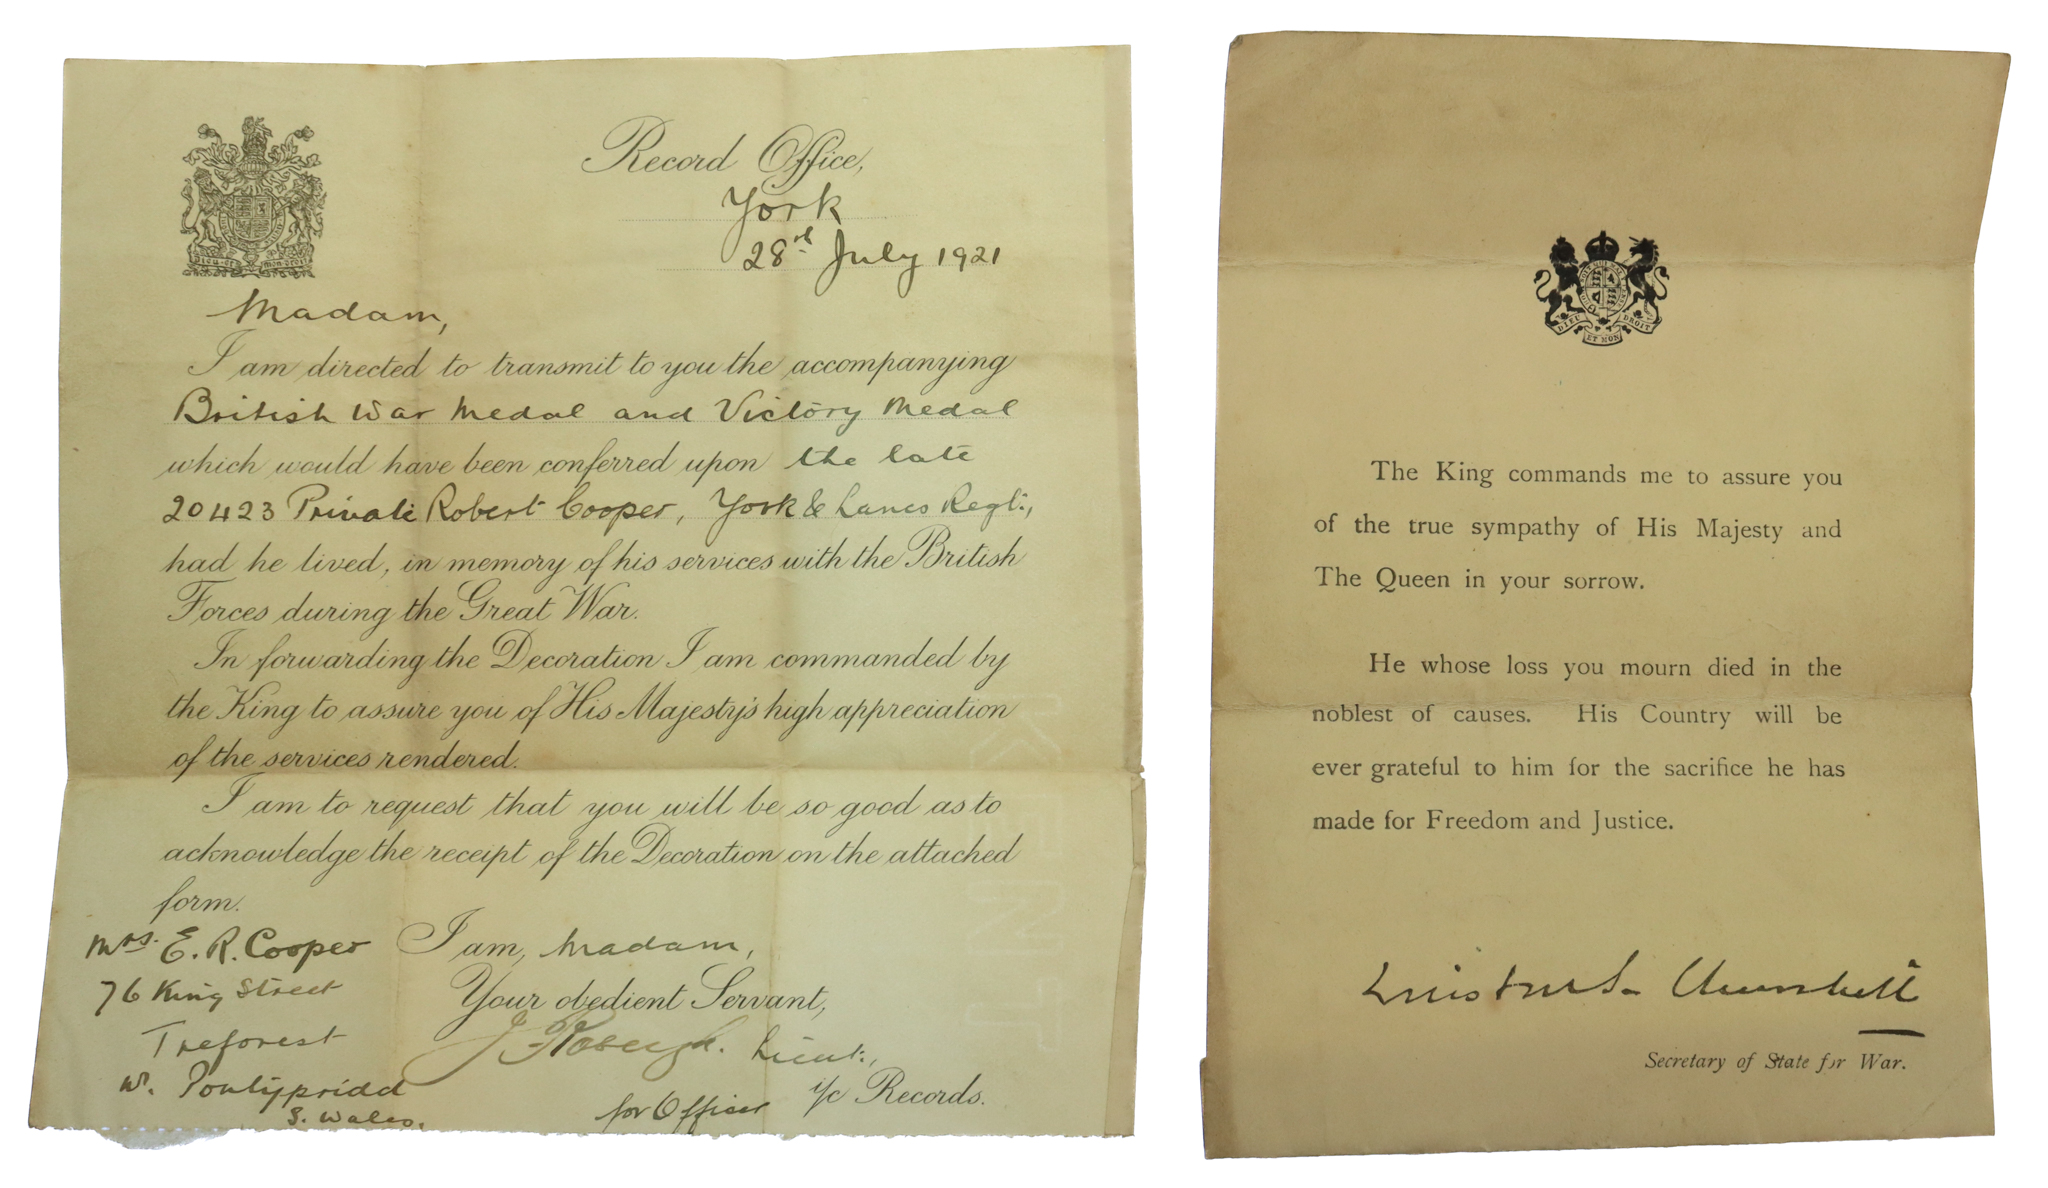 Record Office,
York
28th July 1921
DIEU ET MON DROIT
Madam,
I am directed to transmit to you the accompanying
British War Medal and Victory Medal
which would have been conferred upon the late
20423 Private Robert Cooper, York & Lancs Regt.,
had he lived, in memory of his services with the British
Forces during the Great War.
In forwarding the Decoration I am commanded by
the King to assure you of His Majesty's high appreciation
of the services rendered.
I am to request that you will be so good as to
acknowledge the receipt of the Decoration on the attached
form.
I am, Madam,
Your obedient Servant,
Lieut.,
for Officer i/c Records.
Mrs. E. R. Cooper
76 King Street
Treforest
W. Pontypridd
S. Wales.
KENT
DIEU ET MON DROIT
The King commands me to assure you
of the true sympathy of His Majesty and
The Queen in your sorrow.
He whose loss you mourn died in the
noblest of causes. His Country will be
ever grateful to him for the sacrifice he has
made for Freedom and Justice.
Winston S. Churchill
Secretary of State for War.